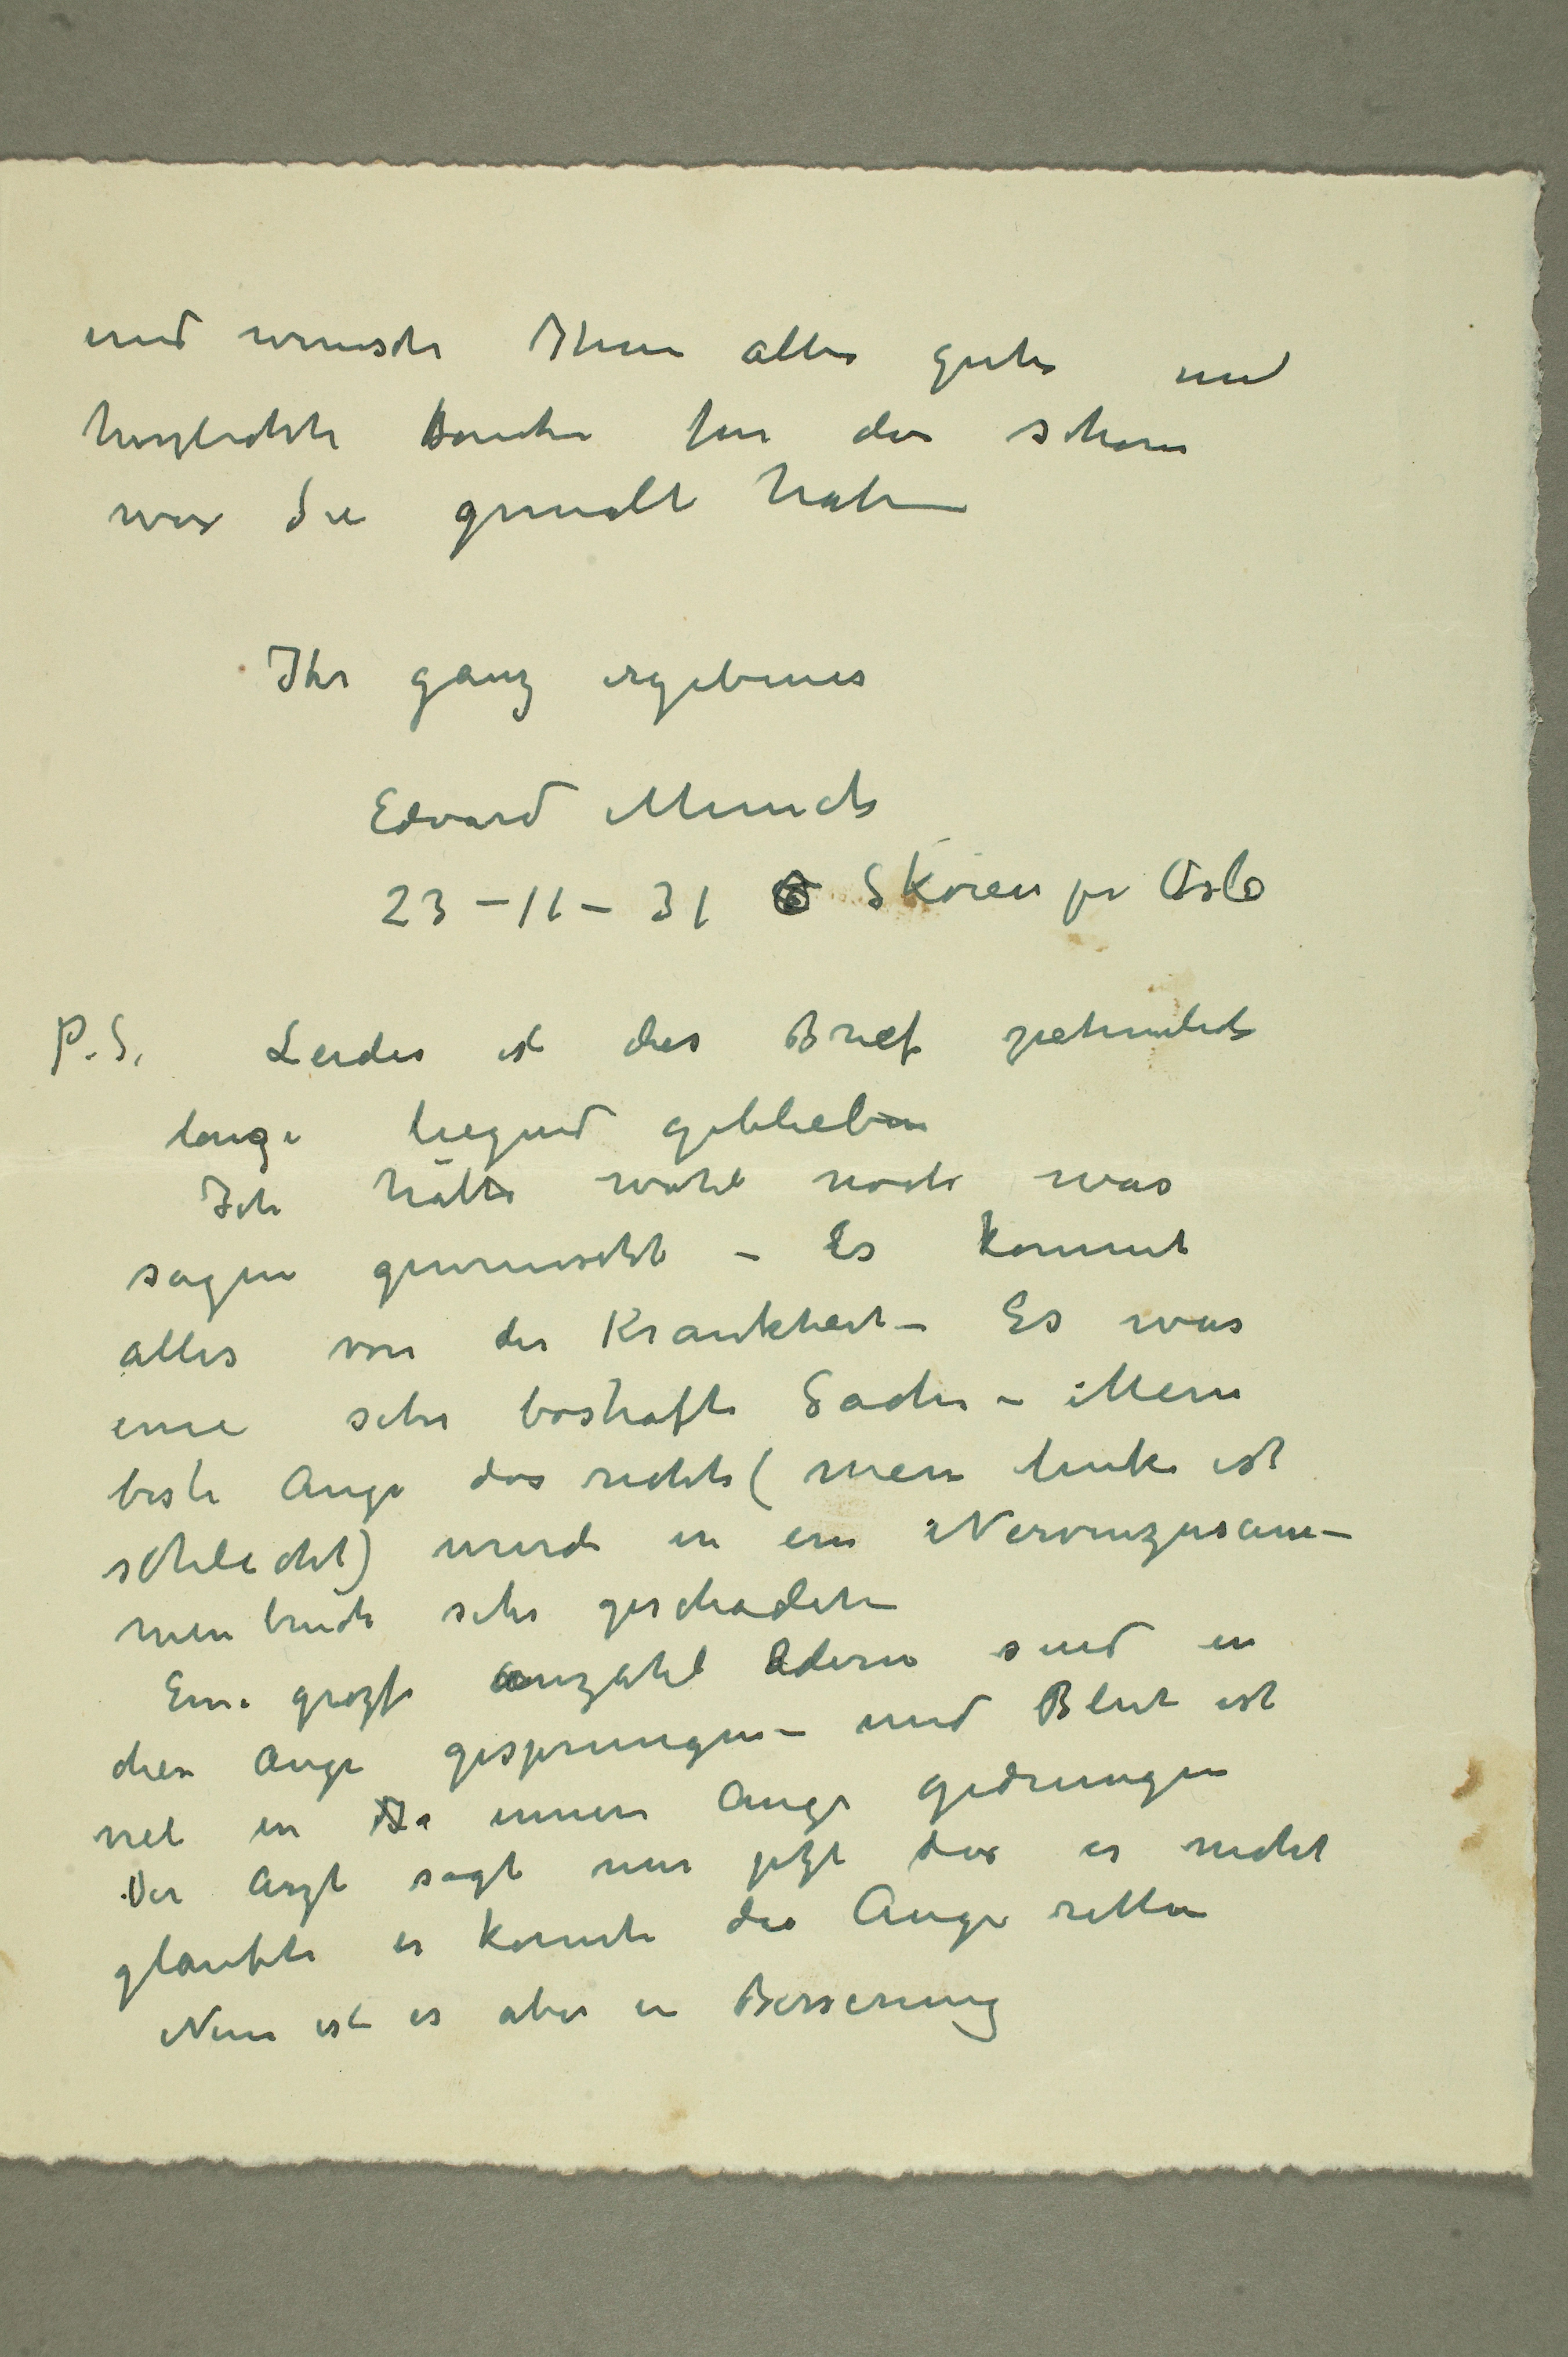 und wünsche Ihnen alles gute und
herzlichste danke für das schöne
was Sie gemalt haben
Ihr ganz ergebenes
Edvard Munch
23–11–31 Skøien pr Oslo
P.S. Leider ist der Brief ziehmlich
lange liegend geblieben
Ich hätte wohl noch was
sagen gewunscht – Es kommt
alles von der Krankheit – Es war
eine sehr boshafte Sache – Mein
beste Auge das rechte (mein linke ist
schlecht) wurde in ein Nervenzusam–
menbruch sehr geschadet
Eine grozse Anzahl Adern sind in
dies Auge gesprungen – und Blut ist
viel in innern Auge gedrungen
Der Arzt sagt mir jetzt das er nicht
glaubte er konnte das Auge retten
Nun ist es aber in Besserung